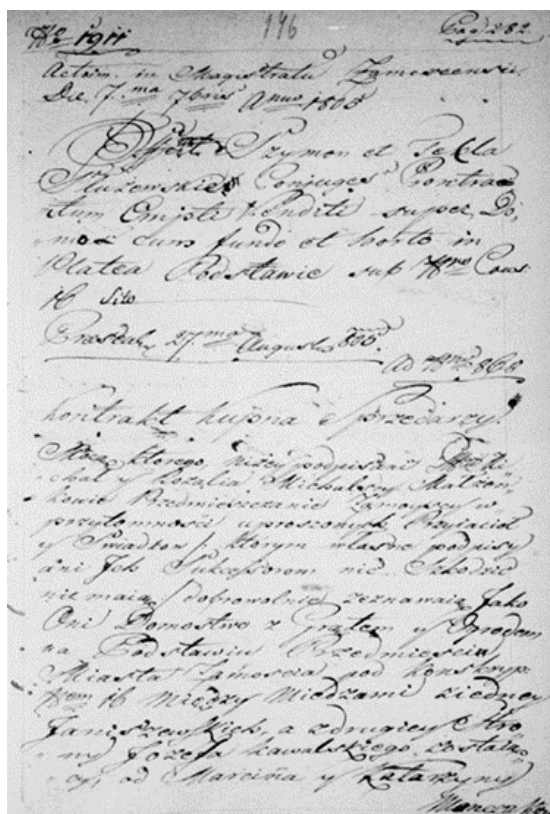 Nº 1911 146 Pag 282
Actum in Magistratu Zamoscensi
Die 7ma 7bris Anno 1805
Szymon et Tekla
Służewskie Conjuges Contrac
tum Empti Venditi super Do,
mo cum fundo et horto in
Platea Podstawie sub Nro Cons
16 sito
Praesent 27ma Augusti 805
Ad Nrum 868
Kontrakt kupna y Przedarzy.
Mocą którego niżey podpisani Mi
chał y Rozalia Michalscy Małżon
kowie Przedmieszczanie Zamoyscy w
przytomności uproszonych Przyiaciół
y Świadków / którym własne podpisy
ani Jch Sukcessorom nic Szkodzić
nie maią / dobrowolnie zeznawaią Jako
Oni Domostwo z Gratem y Ogrodem
na Podstawiu Przedmieściu
Miasta Zamościa pod Konskryp:
Nrem 16 między Miedzami z iedney
Janiszewskich, a z drugiey Stro
ny Józefa Kowalskiego zostaią
cy, od Marcina y Katarzyny